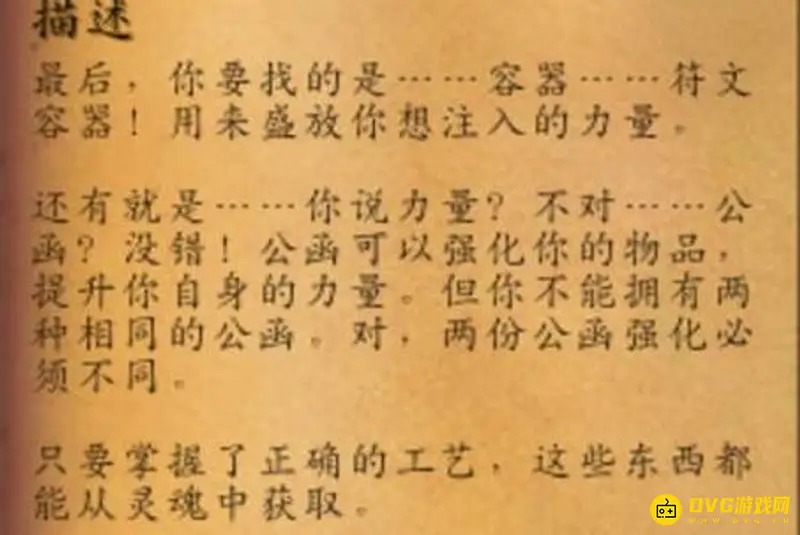 描述
最后，你要找的是……容器……符文
容器！用来盛放你想注入的力量。
还有就是……你说力量？不对……公
函？没错！公函可以强化你的物品，
提升你自身的力量。但你不能拥有两
种相同的公函。对，两份公函强化必
须不同。
只要掌握了正确的工艺，这些东西都
能从灵魂中获取。
DVG游戏网